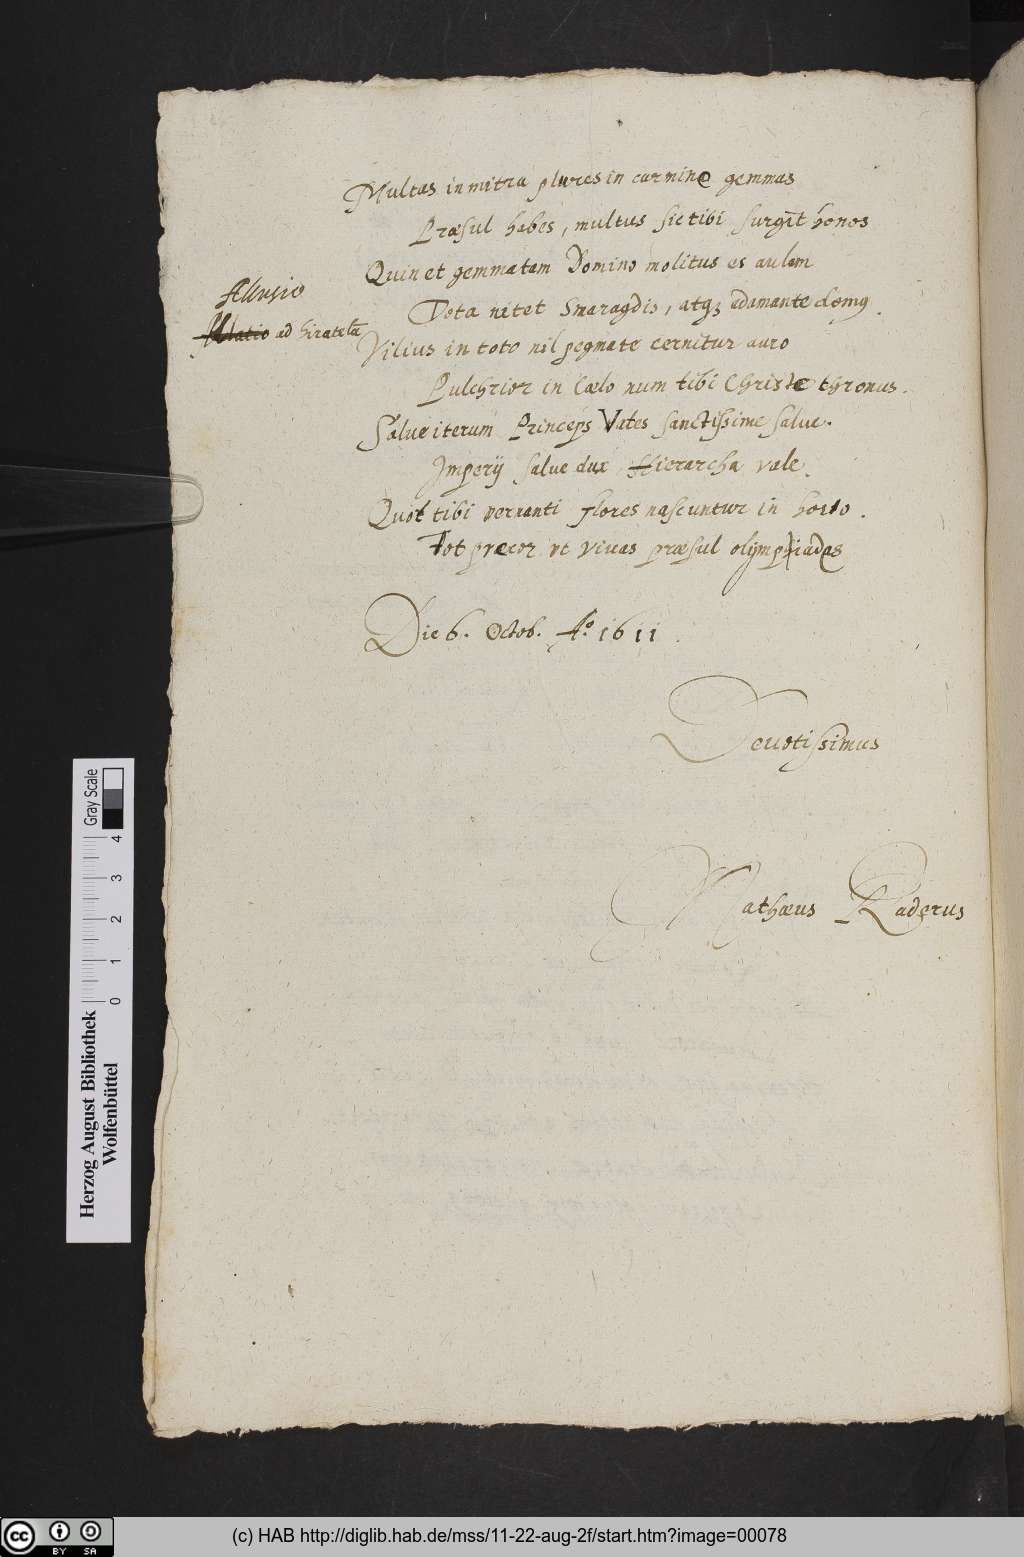 Multas in mitra plures in carmine gemmas
Præsul habes, multus sic tibi surgit honos
Quin et gemmatam Domino molitus es aulam
Tota nitet Smaragdis, atq3 adamante domus.
Allusio
ad hiratecã
Vilius in toto nil pegmate cernitur auro
Pulchrior in Cælo num tibi Christe thronus.
Salue iterum Princeps Vates sanctissime salue.
Imperij salue dux Hierarcha vale.
Quot tibi vernanti flores nascuntur in horto.
Tot precor vt viuas præsul olympiadas
Die 6. Octob. Aº. 1611.
Deuotissimus
Mathæus Raderus
Herzog August Bibliothek
Wolfenbüttel
0 1 2 3 4
Gray Scale
cc BY SA
(c) HAB http://diglib.hab.de/mss/11-22-aug-2f/start.htm?image=00078